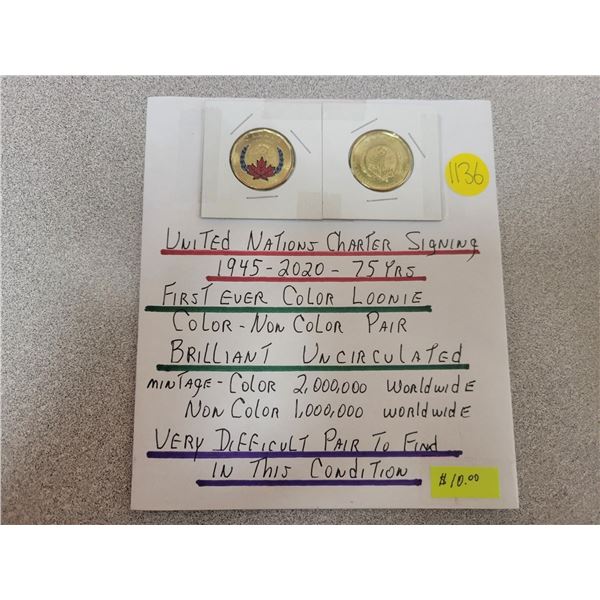 1136
UNITED NATIONS CHARTER SIGNING
1945-2020-75 YRS
FIRST EVER COLOR LOONIE
COLOR-NON COLOR PAIR
BRILLIANT UNCIRCULATED
MINTAGE-COLOR 2,000,000 WORLDWIDE
NON COLOR 1,000,000 WORLDWIDE
VERY DIFFICULT PAIR TO FIND
IN THIS CONDITION
$10.00